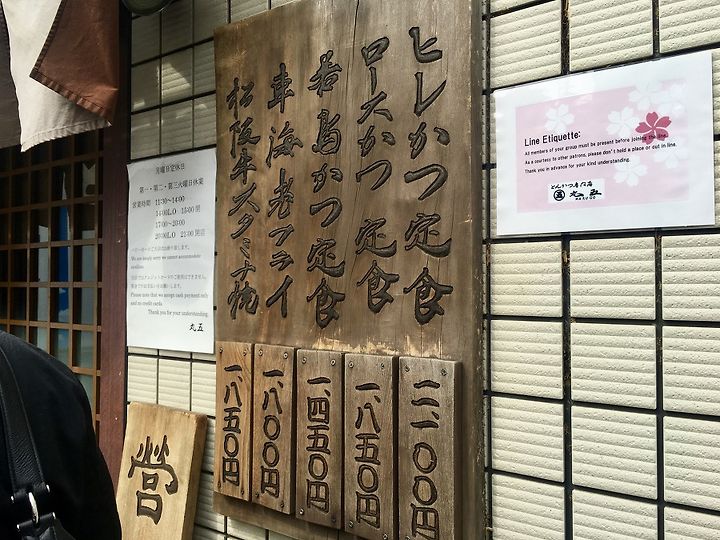 ヒレかつ定食
ロースかつ定食
若鳥かつ定食
車海老フライ
松阪牛スタミナ焼
二、一〇〇円
一、八五〇円
一、四五〇円
一、八〇〇円
一、八五〇円
月曜日定休日
第一・第二・第三火曜日休業
営業時間 11:30~14:00
14:00L.O 15:00閉
17:00~20:00
20:00L.O 21:00閉店
We are deeply sorry we cannot accommodate
Please note that we accept cash payment only
and no credit cards.
Thank you for your understanding.
丸五
営
Line Etiquette:
All members of your group must be present before joining the line.
As a courtesy to other patrons, please don't hold a place or cut in line.
Thank you in advance for your kind understanding.
とんかつ専門店
丸五
MARUGO